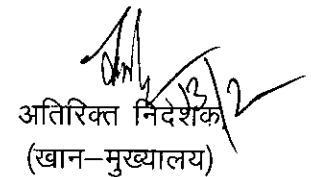 13/2
अतिरिक्त निदेशक
(खान–मुख्यालय)